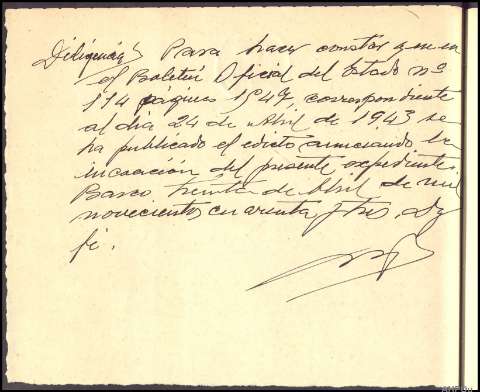 Diligencia; Para hacer constar que en
el Boletín Oficial del Estado nº
114 páginas 1547, correspondiente
al dia 24 de Abril de 1943 se
ha publicado el edicto anunciando la
incoación del presente expediente.
Barco treinta de Abril de mil
novecientos cuarenta y tres, Doy
fé.